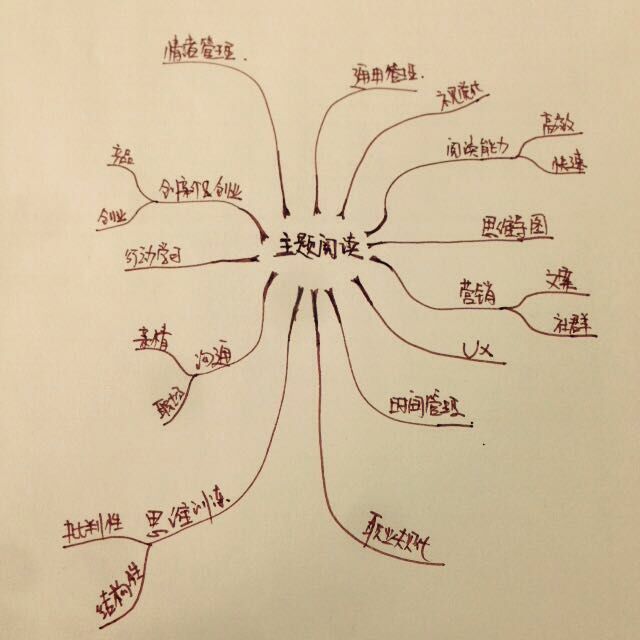 情绪管理
通用管理
视觉化
阅读能力
高效
快速
产品
创新及创业
创业
行动学习
主题阅读
思维导图
营销
文案
社群
亲情
沟通
职场
UX
时间管理
批判性
思维训练
结构性